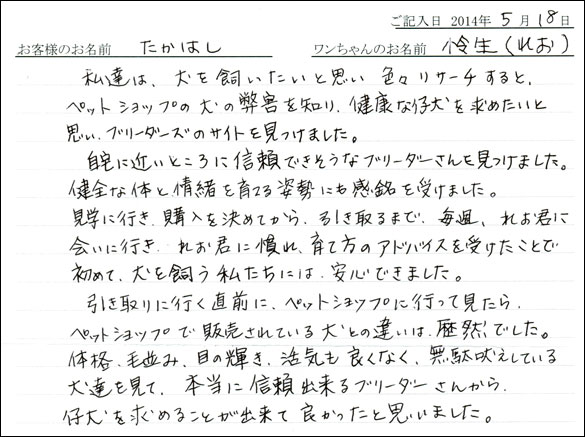 ご記入日 2014年 5 月 18 日
お客様のお名前 たかはし ワンちゃんのお名前 怜生(れお)
私達は、犬を飼いたいと思い 色々リサーチすると、
ペットショップの犬の弊害を知り、健康な仔犬を求めたいと
思い、ブリーダーズのサイトを見つけました。
自宅に近いところに信頼できそうなブリーダーさんを見つけました。
健全な体と情緒を育てる姿勢にも感銘を受けました。
見学に行き、購入を決めてから、引き取るまで、毎週、れお君に
会いに行き、れお君に慣れ、育て方のアドバイスを受けたことで
初めて、犬を飼う私たちには、安心できました。
引き取りに行く直前に、ペットショップに行って見たら、
ペットショップで販売されている犬との違いは、歴然でした。
体格、毛並み、目の輝き、活気も良くなく、無駄吠えしている
犬達を見て、本当に信頼出来るブリーダーさんから、
仔犬を求めることが出来て良かったと思いました。